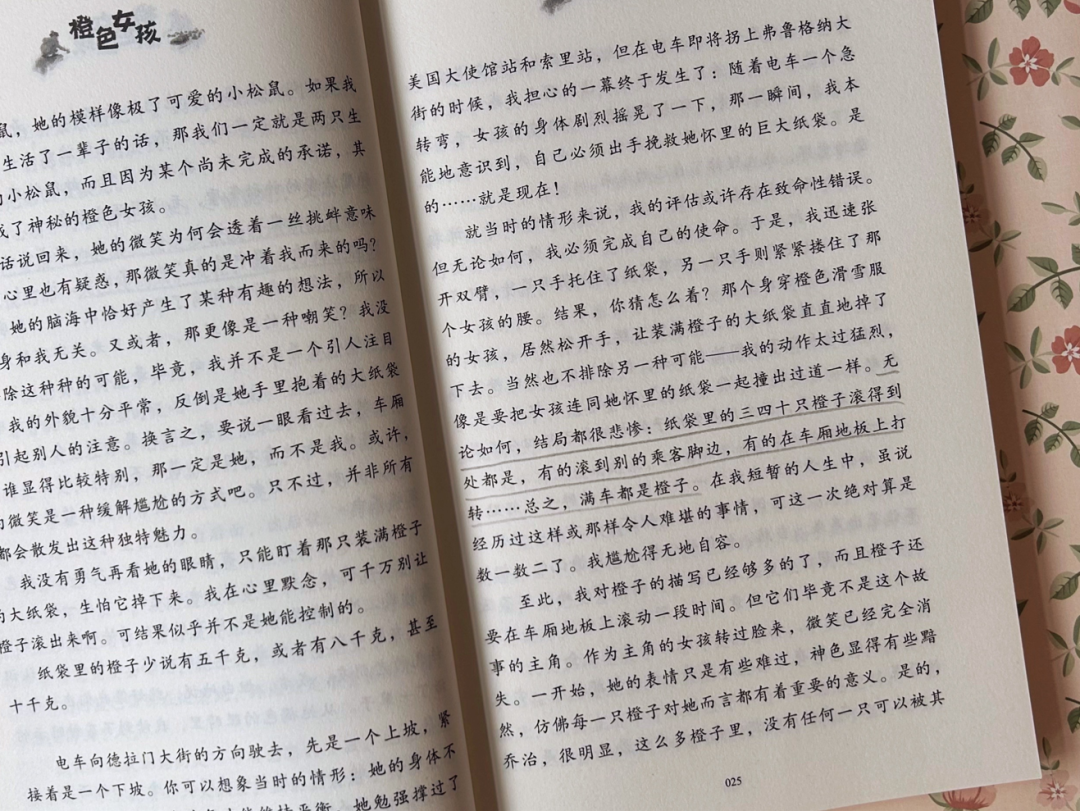 橙色女孩
鼠，她的模样像极了可爱的小松鼠。如果我
生活了一辈子的话，那我们一定就是两只生
小松鼠，而且因为某个尚未完成的承诺，其
成了神秘的橙色女孩。
话说回来，她的微笑为何会透着一丝挑衅意味
心里也有疑惑，那微笑真的是冲着我而来的吗？
她的脑海中恰好产生了某种有趣的想法，所以
身和我无关。又或者，那更像是一种嘲笑？我没
除这种种的可能，毕竟，我并不是一个引人注目
我的外貌十分平常，反倒是她手里抱着的大纸袋
引起别人的注意。换言之，要说一眼看过去，车厢
谁显得比较特别，那一定是她，而不是我。或许，
微笑是一种缓解尴尬的方式吧。只不过，并非所有
都会散发出这种独特魅力。
我没有勇气再看她的眼睛，只能盯着那只装满橙子
的大纸袋，生怕它掉下来。我在心里默念，可千万别让
橙子滚出来啊。可结果似乎并不是她能控制的。
纸袋里的橙子少说有五千克，或者有八千克，甚至
十千克。
电车向德拉门大街的方向驶去，先是一个上坡，紧
接着是一个下坡。你可以想象当时的情形：她的身体不
维持平衡，她勉强撑过了
美国大使馆站和索里站，但在电车即将拐上弗鲁格纳大
街的时候，我担心的一幕终于发生了：随着电车一个急
转弯，女孩的身体剧烈摇晃了一下，那一瞬间，我本
能地意识到，自己必须出手挽救她怀里的巨大纸袋。是
的……就是现在！
就当时的情形来说，我的评估或许存在致命性错误。
但无论如何，我必须完成自己的使命。于是，我迅速张
开双臂，一只手托住了纸袋，另一只手则紧紧搂住了那
个女孩的腰。结果，你猜怎么着？那个身穿橙色滑雪服
的女孩，居然松开手，让装满橙子的大纸袋直直地掉了
下去。当然也不排除另一种可能——我的动作太过猛烈，
像是要把女孩连同她怀里的纸袋一起撞出过道一样。无
论如何，结局都很悲惨：纸袋里的三四十只橙子滚得到
处都是，有的滚到别的乘客脚边，有的在车厢地板上打
转……总之，满车都是橙子。在我短暂的人生中，虽说
经历过这样或那样令人难堪的事情，可这一次绝对算是
数一数二了。我尴尬得无地自容。
至此，我对橙子的描写已经够多的了，而且橙子还
要在车厢地板上滚动一段时间。但它们毕竟不是这个故
事的主角。作为主角的女孩转过脸来，微笑已经完全消
失。一开始，她的表情只是有些难过，神色显得有些黯
然，仿佛每一只橙子对她而言都有着重要的意义。是的，
乔治，很明显，这么多橙子里，没有任何一只可以被其
025